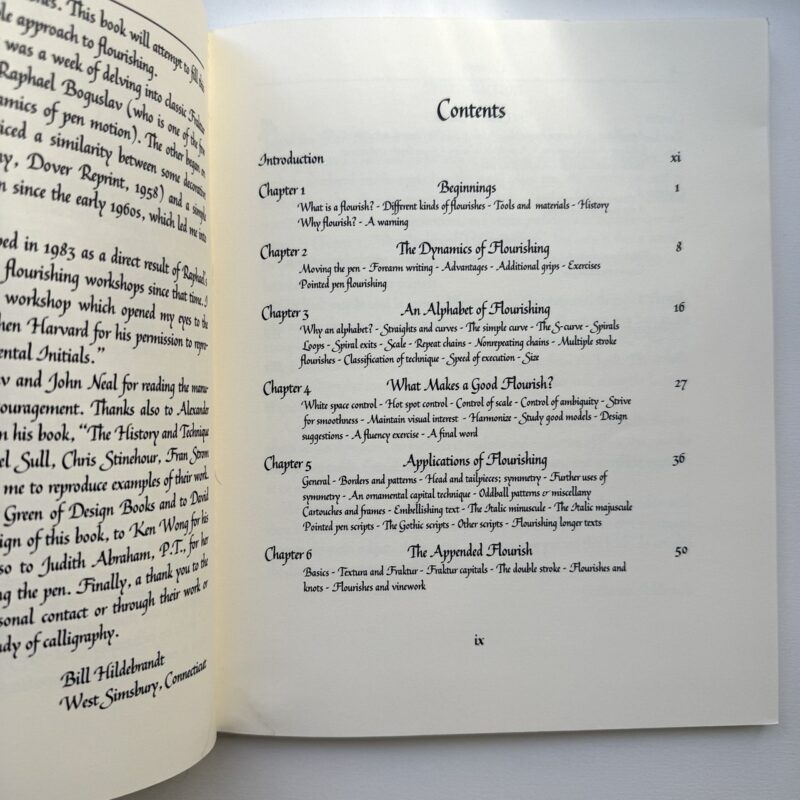 This book will attempt to fill this
approach to flourishing.
was a week of delving into classic Fraktur
Raphael Boguslav (who is one of the few
of pen motion). The other began on
a similarity between some decorative
Dover Reprint, 1958) and a simple
since the early 1960s, which led me into
in 1983 as a direct result of Raphael's
flourishing workshops since that time. I
workshop which opened my eyes to the
Harvard for his permission to repro-
Initials."
and John Neal for reading the manu-
Thanks also to Alexander
in his book, "The History and Technique
Sull, Chris Stinehour, Fran Strom
me to reproduce examples of their work.
Green of Design Books and to David
of this book, to Ken Wong for his
to Judith Abraham, P.T., for her
the pen. Finally, a thank you to the
contact or through their work or
of calligraphy.
Bill Hildebrandt
West Simsbury, Connecticut
Contents
Introduction xi
Chapter 1 Beginnings 1
What is a flourish? - Different kinds of flourishes - Tools and materials - History
Why flourish? - A warning
Chapter 2 The Dynamics of Flourishing 8
Moving the pen - Forearm writing - Advantages - Additional grips - Exercises
Pointed pen flourishing
Chapter 3 An Alphabet of Flourishing 16
Why an alphabet? - Straights and curves - The simple curve - The S-curve - Spirals
Loops - Spiral exits - Scale - Repeat chains - Nonrepeating chains - Multiple stroke
flourishes - Classification of technique - Speed of execution - Size
Chapter 4 What Makes a Good Flourish? 27
White space control - Hot spot control - Control of scale - Control of ambiguity - Strive
for smoothness - Maintain visual interest - Harmonize - Study good models - Design
suggestions - A fluency exercise - A final word
Chapter 5 Applications of Flourishing 36
General - Borders and patterns - Head and tailpieces; symmetry - Further uses of
symmetry - An ornamental capital technique - Oddball patterns & miscellany
Cartouches and frames - Embellishing text - The Italic minuscule - The Italic majuscule
Pointed pen scripts - The Gothic scripts - Other scripts - Flourishing longer texts
Chapter 6 The Appended Flourish 50
Basics - Textura and Fraktur - Fraktur capitals - The double stroke - Flourishes and
knots - Flourishes and vinework
ix